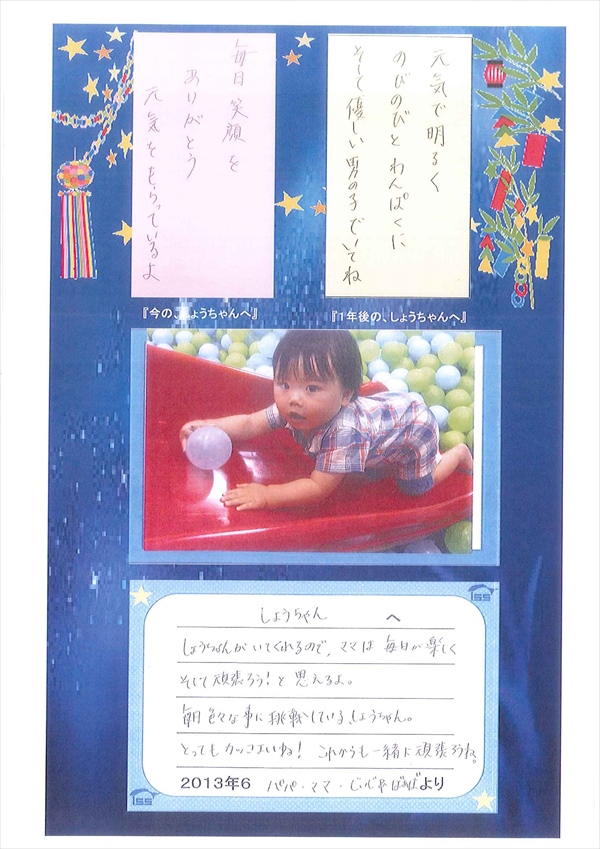 元気で明るく
のびのびとわんぱくに
そして優しい男の子でいてね
毎日笑顔を
ありがとう
元気をもらっているよ
『今の、しょうちゃんへ』
『1年後の、しょうちゃんへ』
ISS
しょうちゃん へ
しょうちゃんがいてくれるので、ママは毎日が楽しく
そして頑張ろう!と思えるよ。
毎日色々な事に挑戦している、しょうちゃん。
とってもカッコよいね! これからも一緒に頑張ろうね。
2013年6 パパ・ママ・じぃじ・ばぁばより
ISS